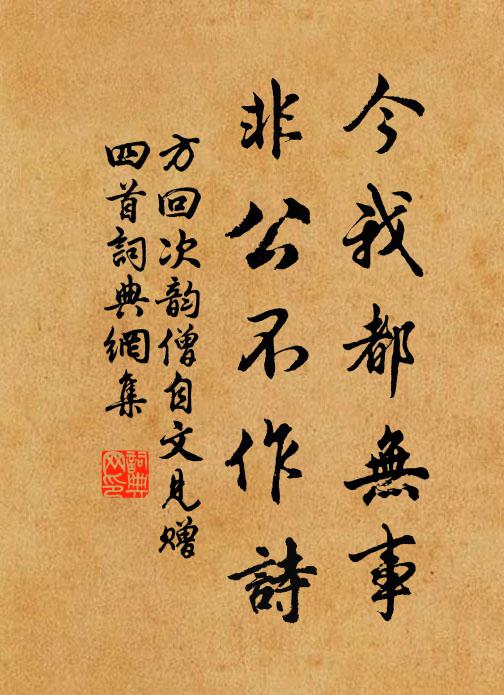 今我都無事
非公不作詩
方回次韵僧自文見贈
四首詞典網集
詞典
网印